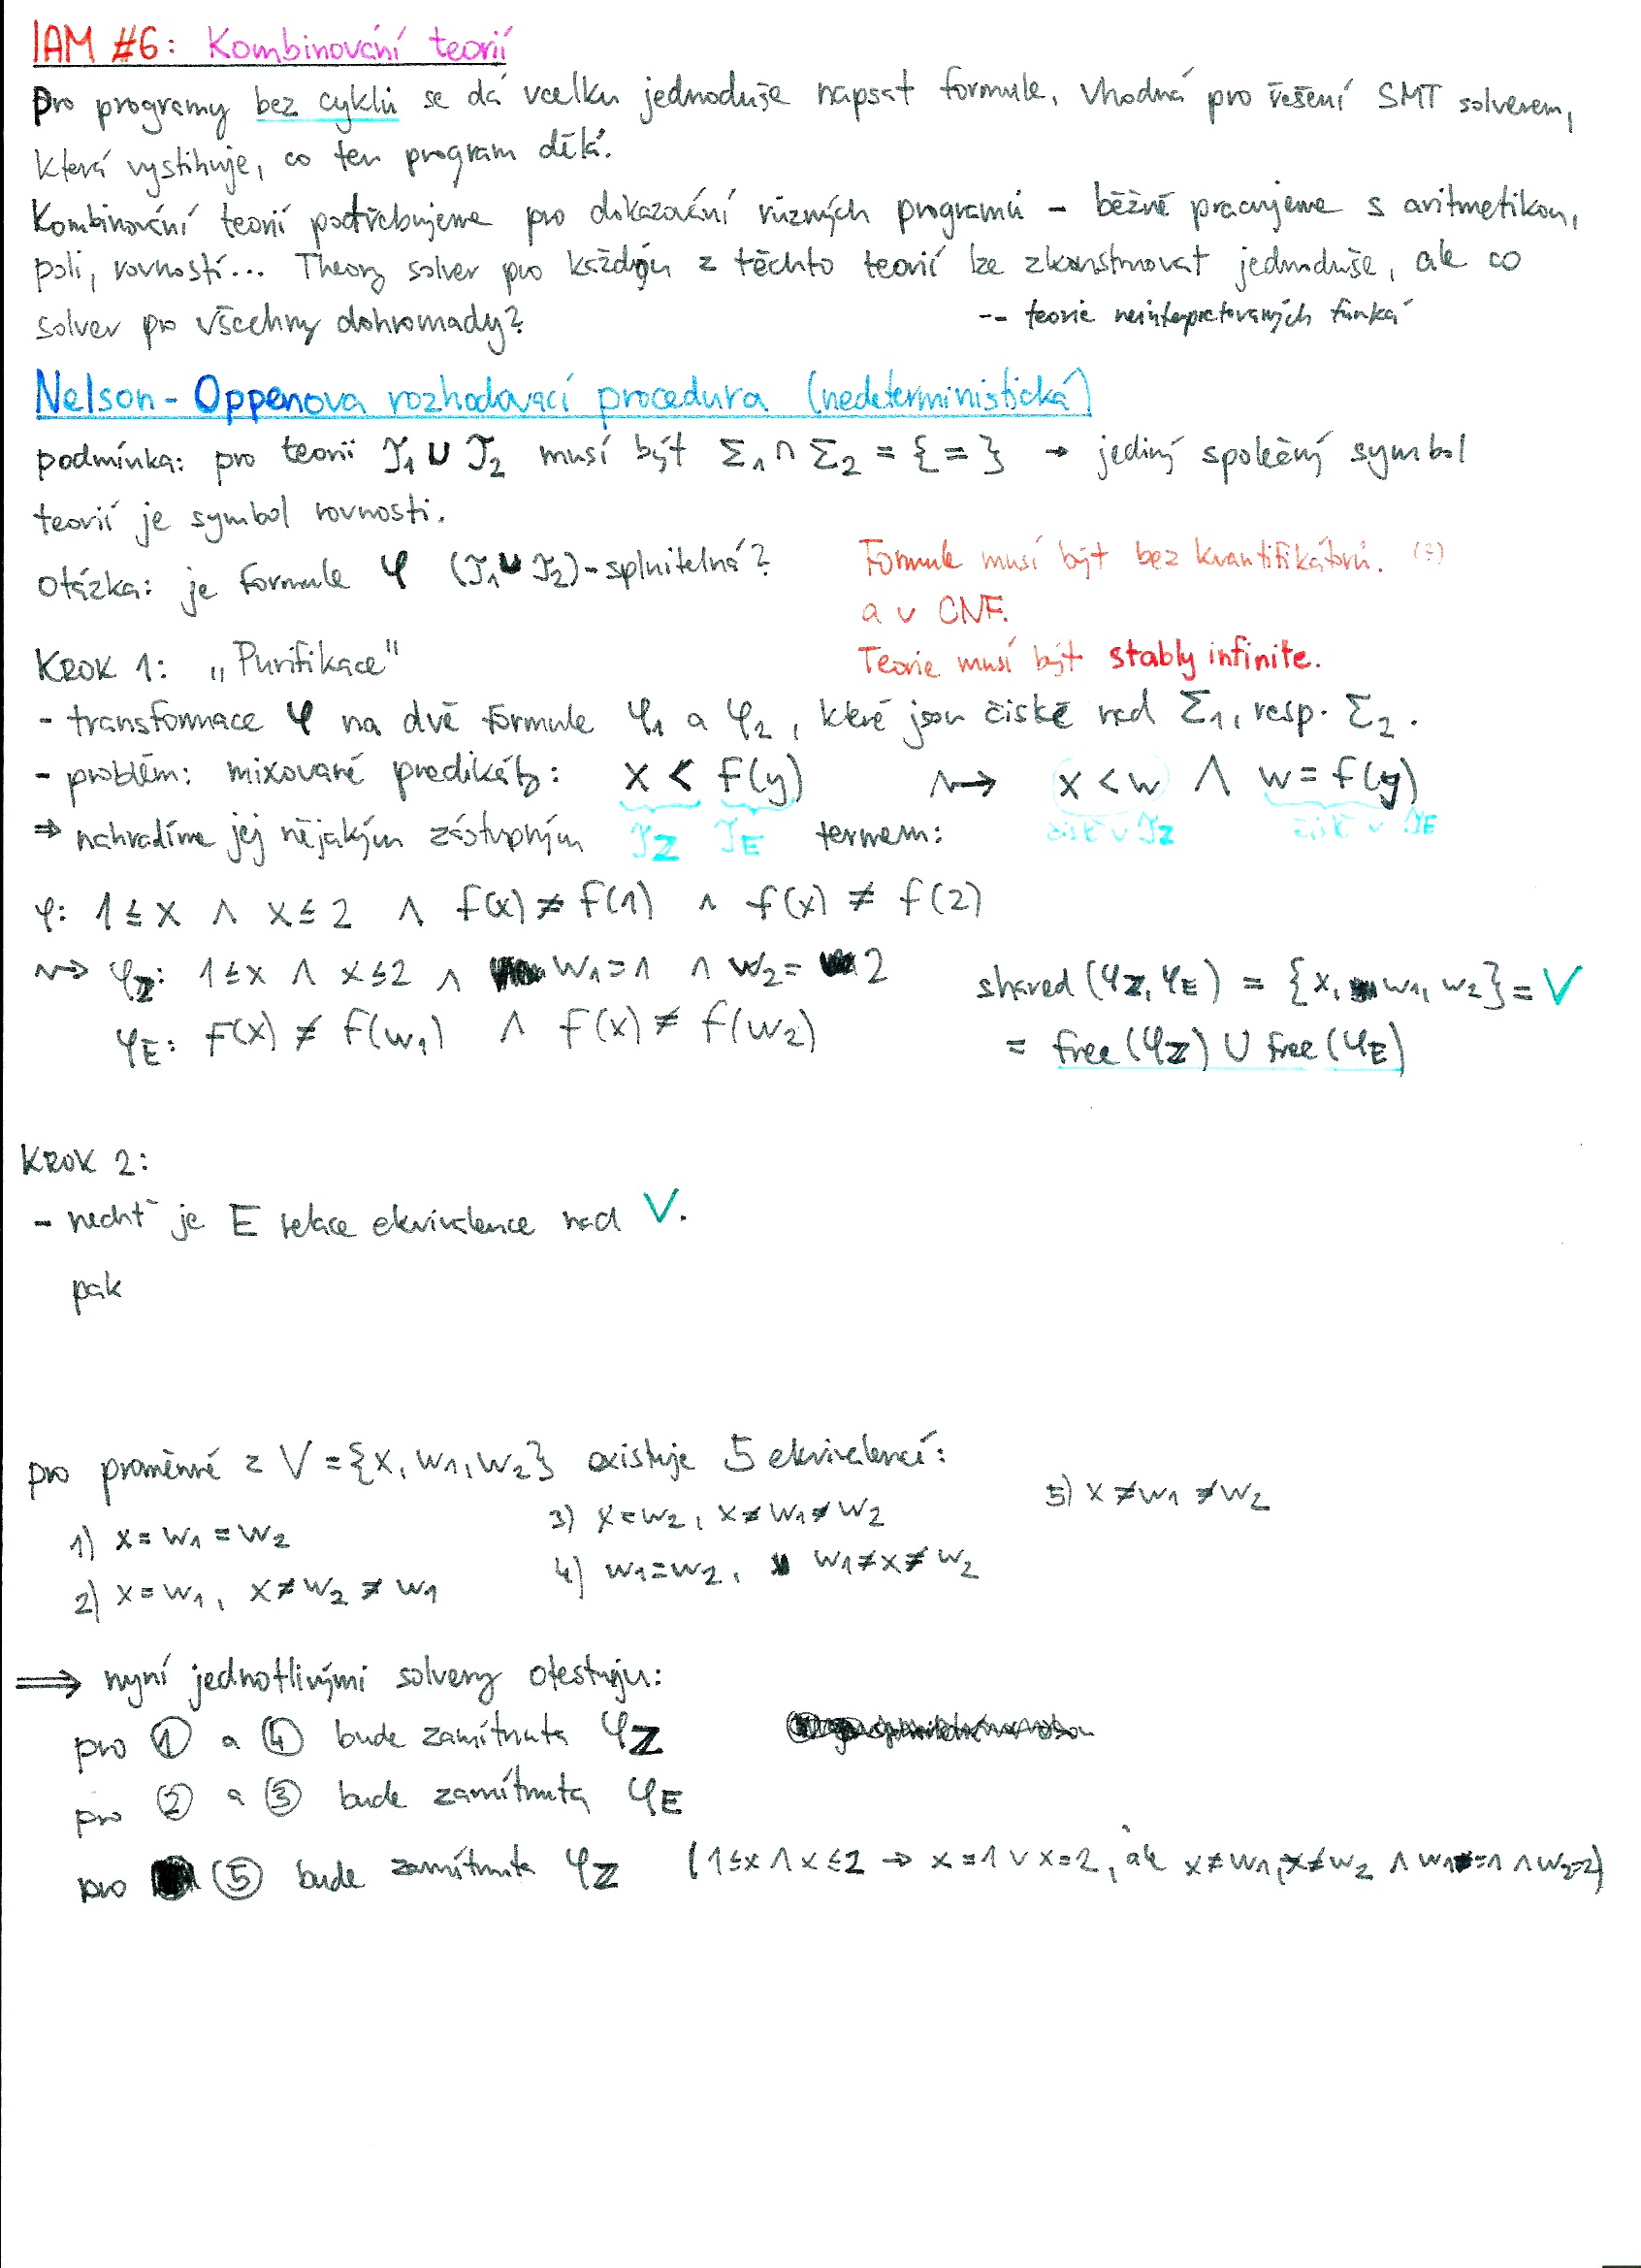 IAM #6: Kombinování teorií
Pro programy bez cyklů se dá vcelku jednoduše napsat formule, vhodná pro řešení SMT solverem,
která vystihuje, co ten program dělá.
Kombinování teorií potřebujeme pro dokazování různých programů - běžně pracujeme s aritmetikou,
poli, rovností... Theory solver pro každou z těchto teorií lze zkonstruovat jednoduše, ale co
solver pro všechny dohromady?
-- teorie neinterpretovaných funkcí
Nelson-Oppenova rozhodovací procedura (nedeterministická)
podmínka: pro teorii 𝒯₁ ∪ 𝒯₂ musí být Σ₁ ∩ Σ₂ = {=} → jediný společný symbol
teorií je symbol rovnosti.
otázka: je formule φ (𝒯₁ ∪ 𝒯₂)-splnitelná?
Formule musí být bez kvantifikátorů. (?)
a v CNF.
Teorie musí být stably infinite.
KROK 1: „Purifikace"
- transformace φ na dvě formule φ₁ a φ₂, které jsou čistě nad Σ₁, resp. Σ₂.
- problém: mixované predikáty: x < f(y) ⇝ x < w ∧ w = f(y)
⇒ nahradíme jej nějakým zástupným 𝒯ℤ 𝒯E termem: čistě v 𝒯ℤ čistě v 𝒯E
φ: 1 ≤ x ∧ x ≤ 2 ∧ f(x) ≠ f(1) ∧ f(x) ≠ f(2)
⇝ φℤ: 1 ≤ x ∧ x ≤ 2 ∧ w₁ = 1 ∧ w₂ = 2
φE: f(x) ≠ f(w₁) ∧ f(x) ≠ f(w₂)
shared(φℤ, φE) = {x, w₁, w₂} = V
= free(φℤ) ∪ free(φE)
KROK 2:
- nechť je E relace ekvivalence nad V.
pak
pro proměnné z V = {x, w₁, w₂} existuje 5 ekvivalencí:
1) x = w₁ = w₂
2) x = w₁, x ≠ w₂ ≠ w₁
3) x = w₂, x ≠ w₁ ≠ w₂
4) w₁ = w₂, w₁ ≠ x ≠ w₂
5) x ≠ w₁ ≠ w₂
⟹ nyní jednotlivými solvery otestuju:
pro ① a ④ bude zamítnuta φℤ
pro ② a ③ bude zamítnuta φE
pro ⑤ bude zamítnuta φℤ (1 ≤ x ∧ x ≤ 2 → x = 1 ∨ x = 2, ale x ≠ w₁, x ≠ w₂ ∧ w₁ = 1 ∧ w₂ = 2)